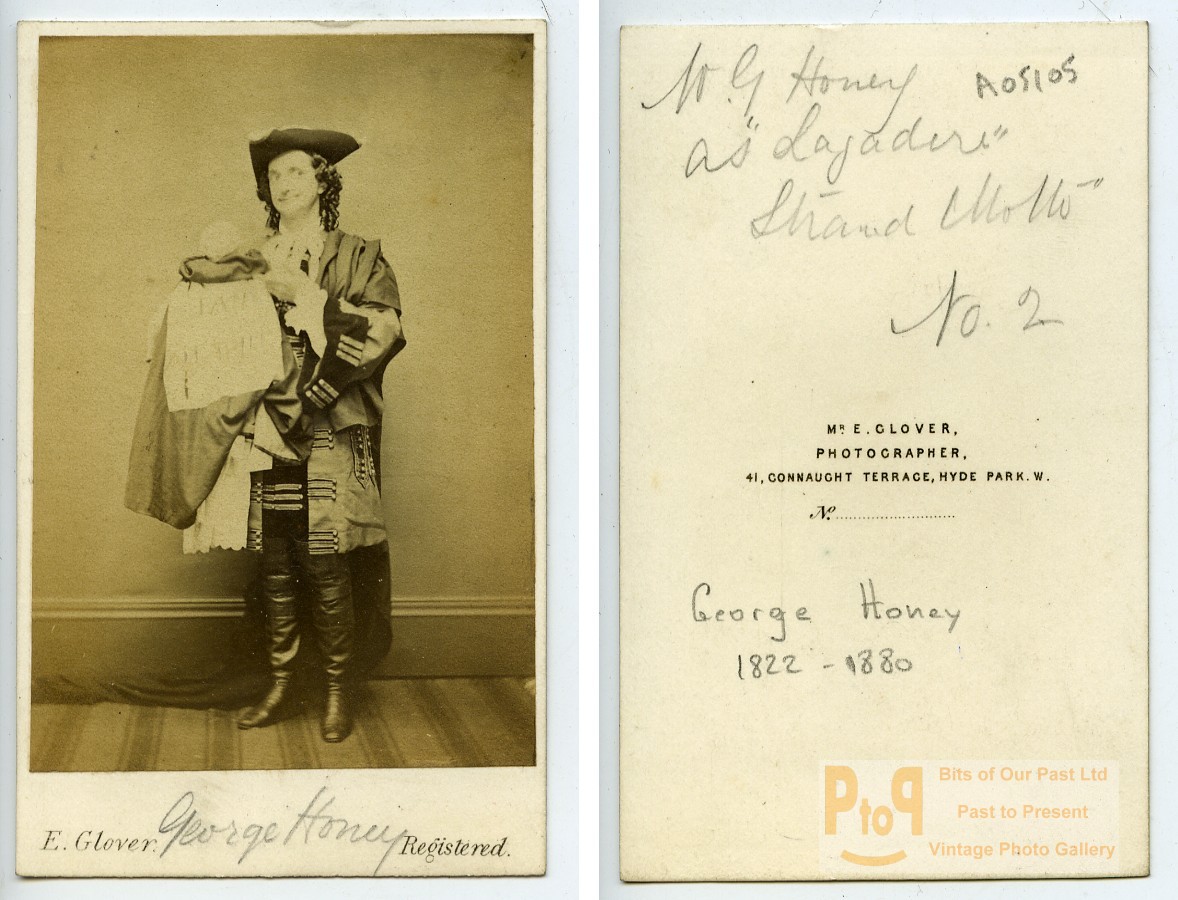 E. Glover. George Honey Registered.
Mr G Honey A05105
as "Lagadere"
Strand Motto"
No. 2
MR E. GLOVER,
PHOTOGRAPHER,
41, CONNAUGHT TERRACE, HYDE PARK. W.
No.
George Honey
1822 - 1880
PtoP
Bits of Our Past Ltd
Past to Present
Vintage Photo Gallery